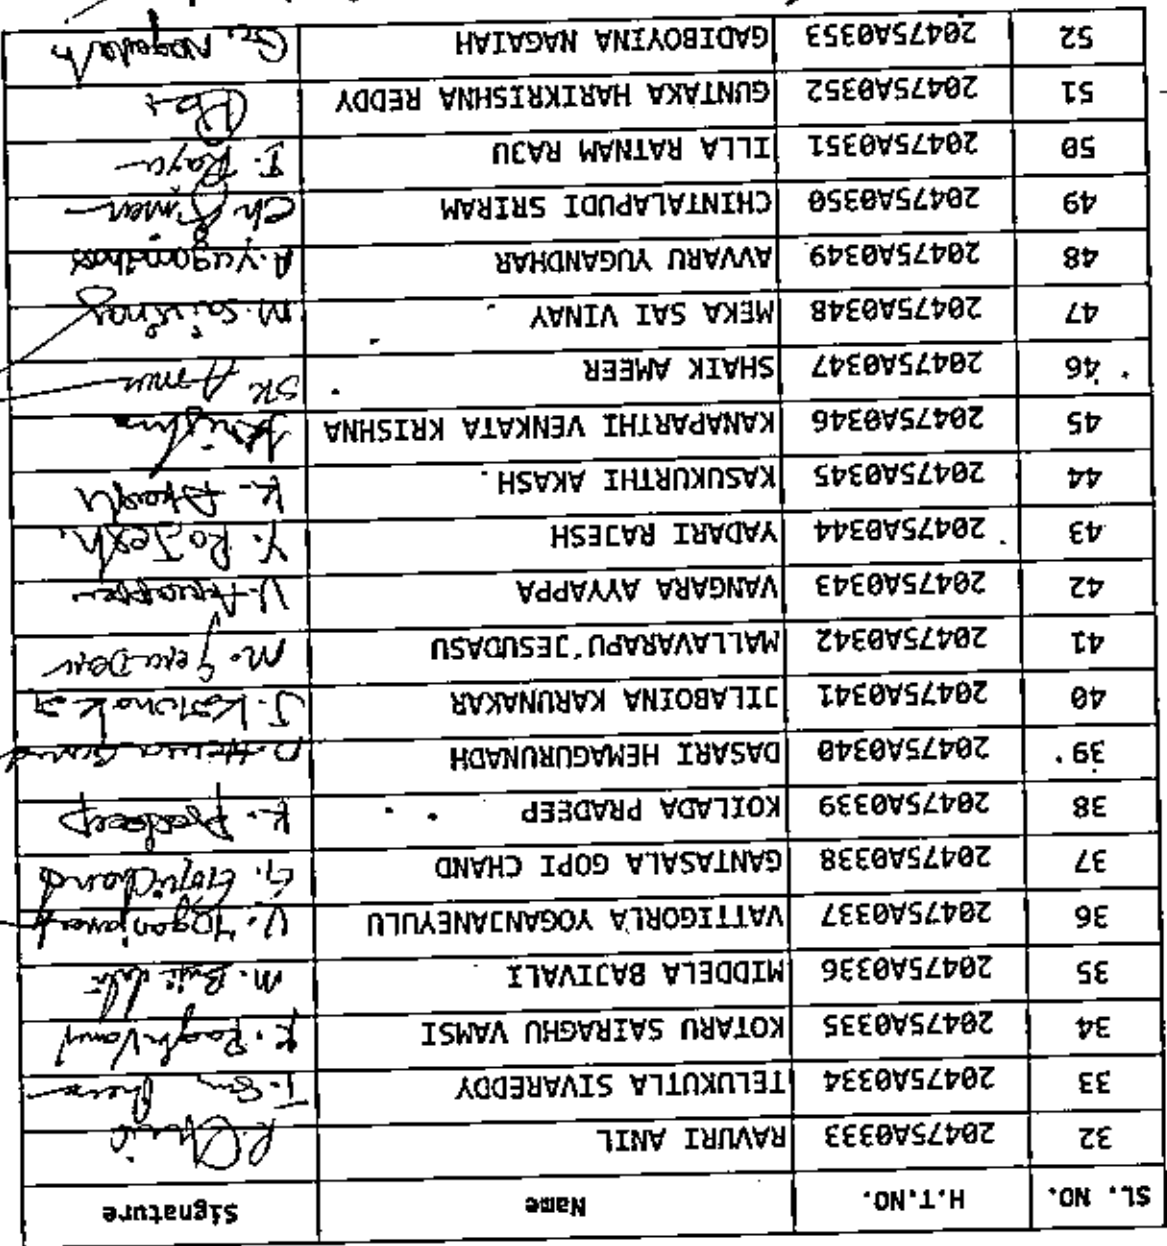 SL. NO. H.T.NO. Name Signature
32 20475A0333 RAVURI ANIL R. Anil
33 20475A0334 TELUKUTLA SIVAREDDY
34 20475A0335 KOTARU SAIRAGHU VAMSI K. Raghu Vamsi
35 20475A0336 MIDDELA BAJIVALI
36 20475A0337 VATTIGORLA YOGANJANEYULU V. Yoganjaneyulu
37 20475A0338 GANTASALA GOPI CHAND G. Gopi Chand
38 20475A0339 KOILADA PRADEEP K. Pradeep
39 20475A0340 DASARI HEMAGURUNADH
40 20475A0341 JILABOINA KARUNAKAR J. Karunakar
41 20475A0342 MALLAVARAPU JESUDASU
42 20475A0343 VANGARA AYYAPPA V. Ayyappa
43 20475A0344 YADARI RAJESH Y. RaJesh.
44 20475A0345 KASUKURTHI AKASH K. Akash
45 20475A0346 KANAPARTHI VENKATA KRISHNA
46 20475A0347 SHAIK AMEER SK Ameer
47 20475A0348 MEKA SAI VINAY
48 20475A0349 AVVARU YUGANDHAR A. Yugandhar
49 20475A0350 CHINTALAPUDI SRIRAM
50 20475A0351 ILLA RATNAM RAJU I. Raju
51 20475A0352 GUNTAKA HARIKRISHNA REDDY
52 20475A0353 GADIBOYINA NAGAIAH G. Nagaiah